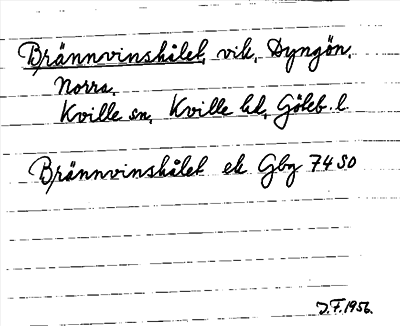 Brännvinshålet, vik, Dyngön,
Norra,
Kville sn, Kville hd, Göteb. l
Brännvinshålet ek Gbg 74 SO
J.F. 1956.